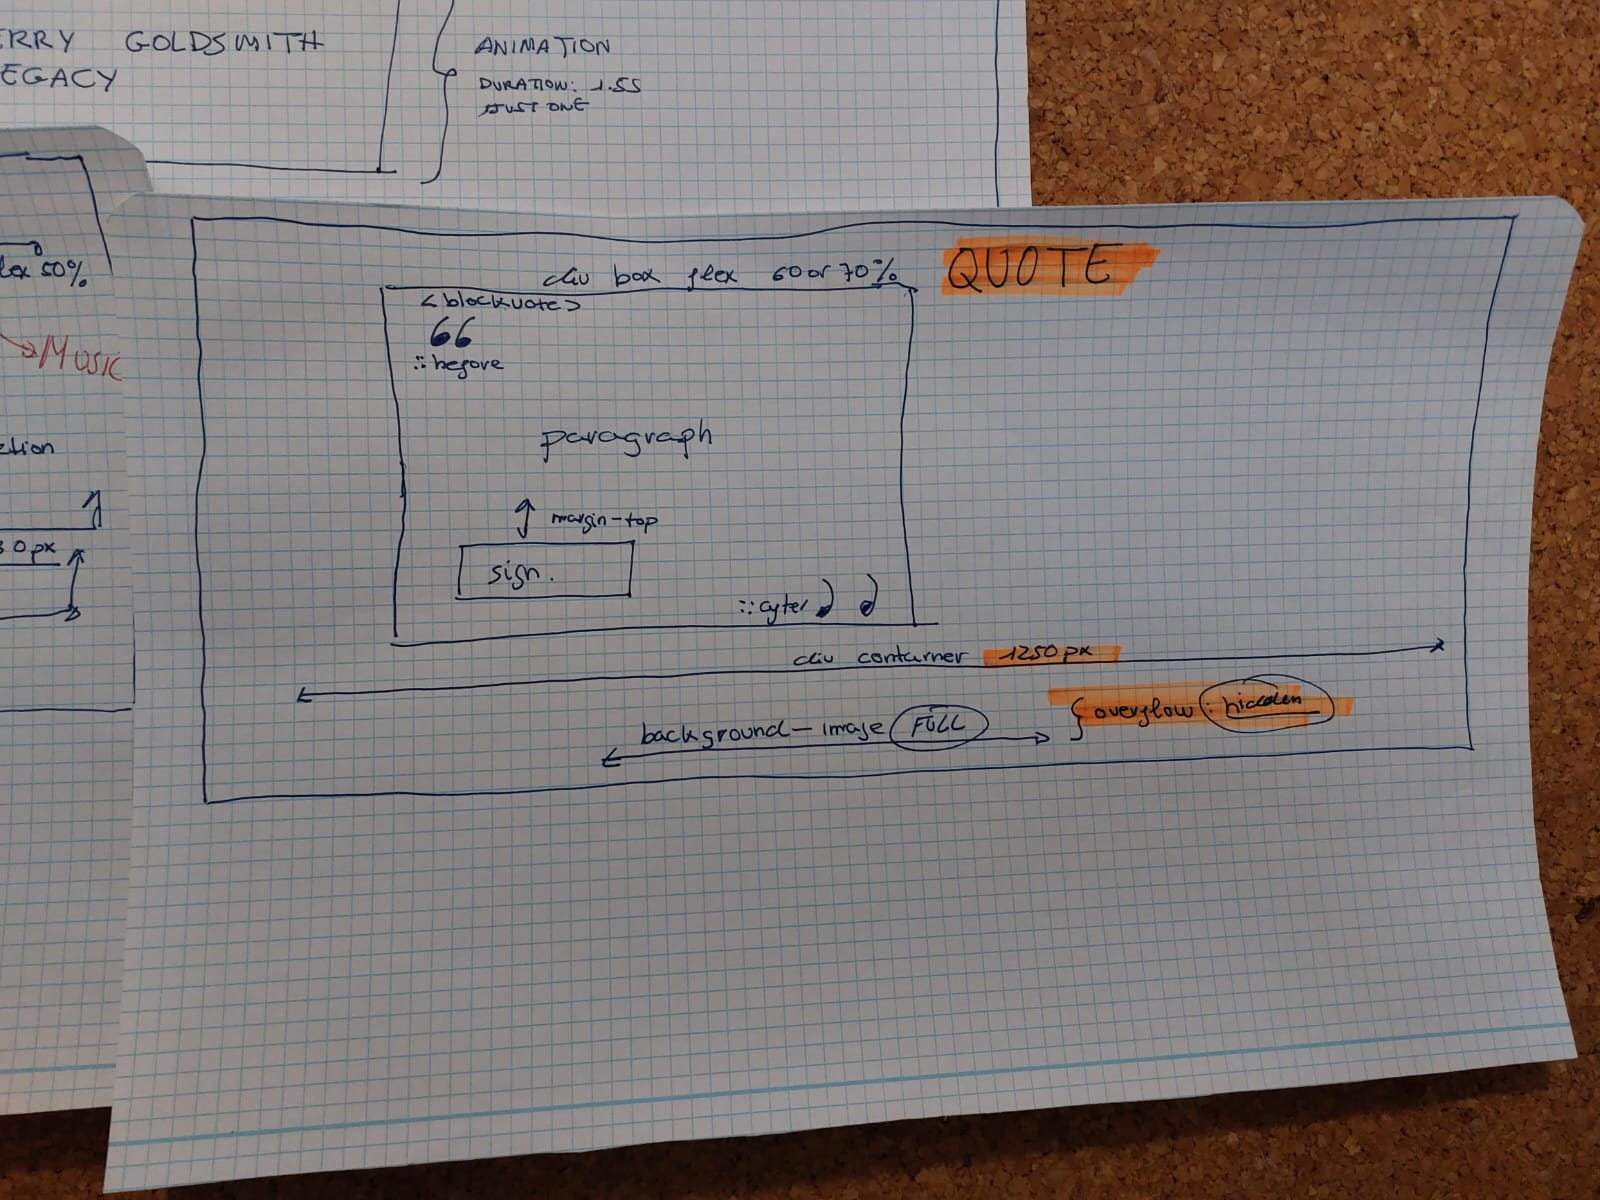 ERRY GOLDSMITH
EGACY
ANIMATION
DURATION: 1.5S
JUST ONE
lex 50%
MUSIC
ction
30px
QUOTE
div box flex 60 or 70%
<blockuote>
66
::before
paragraph
margin-top
sign.
::after
div container 1250px
background-image FULL
{ overflow: hidden